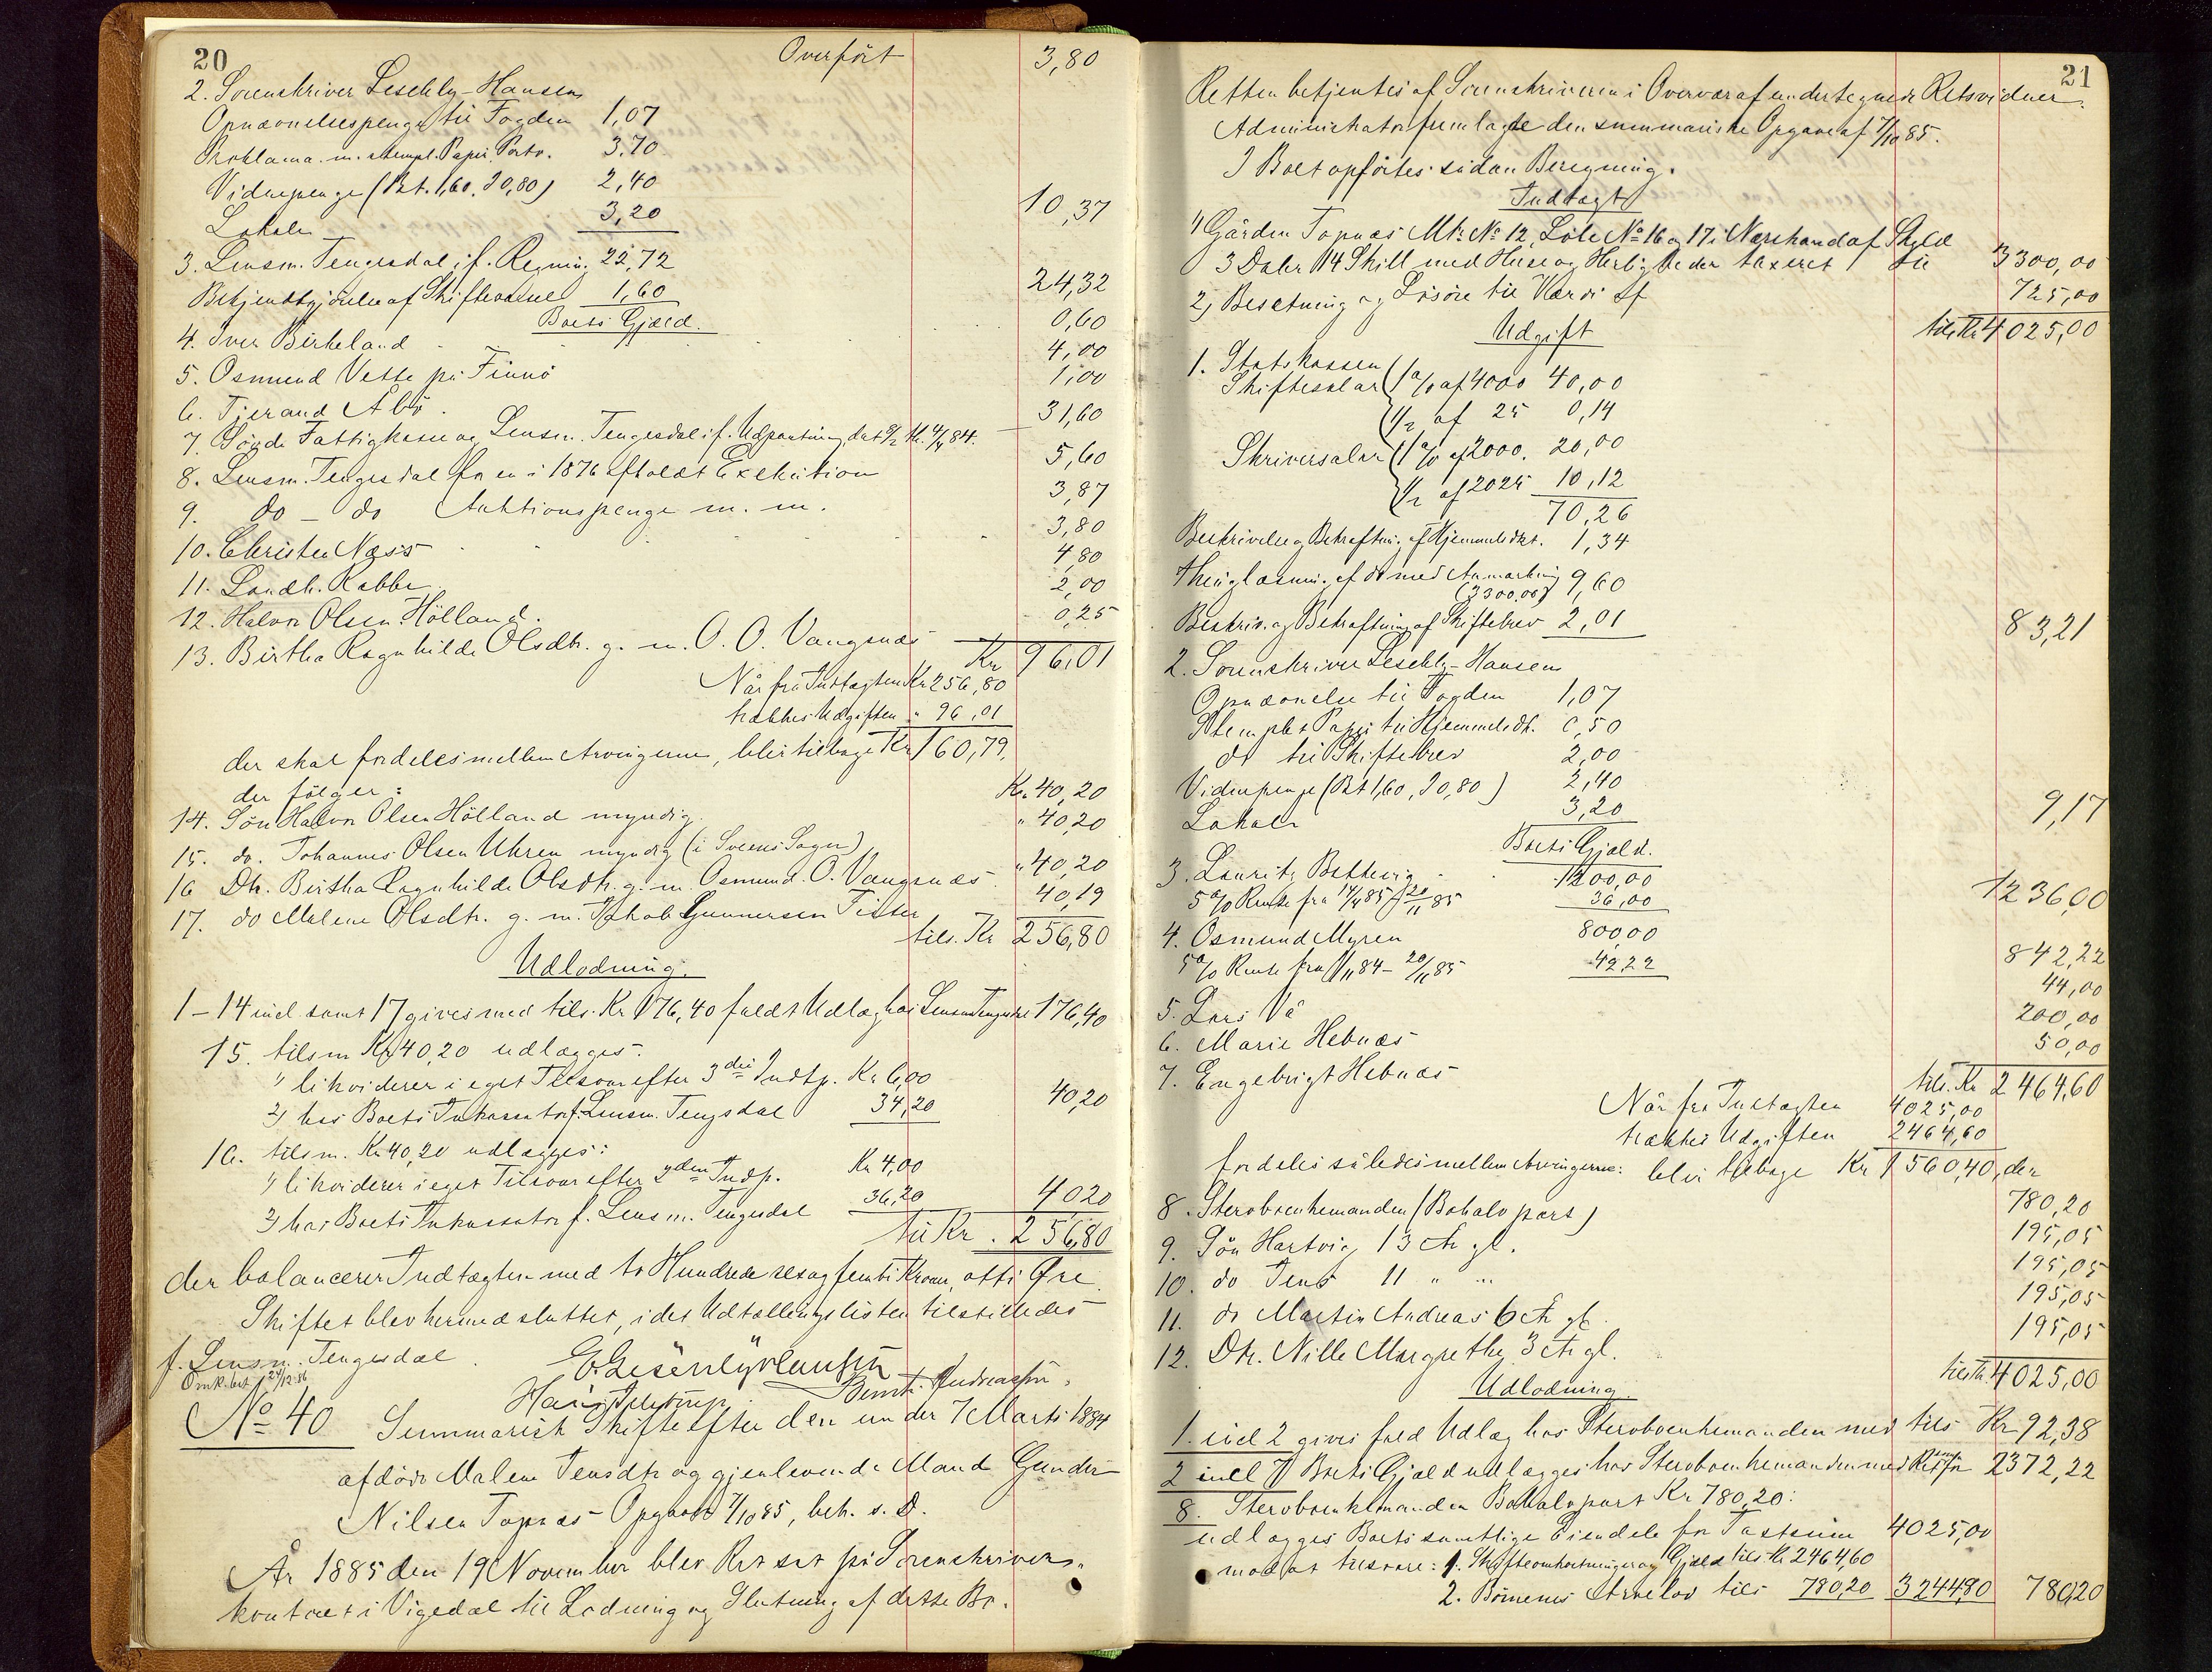 20
Overført 3,80
2. Sorenskriver Leschly-Hansen
Opnævnelsespenge til Fogden 1,07
Proklama m. stempl. Papir, Porto. 3,70
Vidnepenge (Bt. 1,60. D 0,80) 2,40
Lokale 3,20 10,37
3. Lensm. Tengesdal if. Regning 22,72
Bekjendtgjørelse af Skiftes 1,60 24,32
Boets Gjæld.
4. Iver Birkeland 0,60
5. Osmund Vette på Finnö 4,00
6. Tjerand Abö 1,00
7. Fattigkasse og Lensm. Tengesdal if. Udpantning 4/4 84. 31,60
8. Lensm. Tengesdal for en i 1876 afholdt Exekution 5,60
9. do - do Auktionspenge m. m. 3,87
10. Christen Næss 3,80
11. Landh. Rabbe 4,80
12. Halvor Olsen Hölland. 2,00
13. Birtha Ragnhilde Olsdtr. g. m. O. O. Vangsnæs 0,25
Kr 96,01
Når fra Indtægten Kr 256,80
trækkes Udgiften " 96,01
der skal fordeles mellem Arvingerne, blir tilbage Kr 160,79,
der følger:
14. Sön Halvor Olsen Hölland myndig. Kr. 40,20
15. do. Johannes Olsen Uhren myndig (i Sveens Sogn) " 40,20
16 Dtr. Birtha Ragnhilde Olsdtr. g. m. Osmund. O. Vangsnæs " 40,20
17. do Malene Olsdtr. g. m. Jakob Gunnersen Tister 40,19
tils. Kr 256,80
Udlodning.
1 – 14 incl. samt 17 gives med tils. Kr 176,40 fuldt Udlæg hos Lensm Tengesdal 176,40
15. tilsm Kr 40,20 udlægges:
1) likviderer i eget Tilsvar efter 3die Indtp. Kr 6,00
2) hos Boets Inkassator f. Lensm. Tengsdal 34,20 40,20
16. tilsm. Kr 40,20 udlægges:
1) likviderer i eget Tilsvar efter 2den Indp. Kr 4,00
2) hos Boets Inkassator f. Lensm. Tengesdal 36,20 40 20
til Kr. 256,80
der balancerer Indtægten med to Hundrede sex og femti Kroner, otti Øre.
Skiftet blev hermed sluttet, idet Udtællingslisten tilstilledes
f. Lensm. Tengesdal.
Bernt Andreassen.
No 40 Summarisk Skifte efter den under 7 Marts 1884
afdöde Malene Jensdtr og gjenlevende Mand Gunder
Nilsen Topnæs – Opgave 7/10 85, beh. s. D.
År 1885 den 19 November blev Ret sat på Sorenskriver-
kontoret i Vigedal til Lodning og Slutning af dette Bo.
21
Retten betjentes af Sorenskriveren i Overvær af undertegnede Retsvidner.
Administrator fremlagde den summariske Opgave af 7/10 85.
I Boet opførtes sådan Beregning.
Indtægt
1) Gården Topnæs Mtr. No 12, Löbe No 16 og 17 i Nærstrand af Skyld
3 Daler 14 Skill med Huse og Herligheder taxeret til 3300,00
2) Besætning og Lösöre til Værdi af 725,00
Udgift tils. Kr 4025,00
1. Statskassen
Skiftesalar (1 % af 4000 40,00
(1/2 af 25 0,14
Skriversalar (1 % af 2000. 20,00
1/2 af 2025 10,12
70,26
Beskrivelse og Bekræftning af Hjemmelsdkt. 1,34
Thinglæsning af do med Anmærkning 9,60
(3300,00)
Beskriv. og Bekræftning af Skiftebrev 2,01 83,21
2. Sorenskriver Leschly-Hansen
Opnævnelse til Fogden 1,07
Stemplet Papir til Hjemmelsdk. 0,50
do til Skiftebrev 2,00
Vidnepenge (Bt 1,60, D 0,80) 2,40
Lokale 3,20 9,17
Boets Gjæld.
3. Lauritz Bathevig 1200,00
5 % Rente fra 14/4 85 – 20/11 85 36,00 1236,00
4. Osmund Myren 800 00
5 % Rente fra 1/11 84 – 20/11 85 42,22 842,22
5. Lars Vå 44,00
6. Marie Hebnæs 200,00
7. Engebrigt Hebnæs 50,00
tils. Kr 2464,60
Når fra Indtægten 4025,00
trækkes Udgiften 2464,60
blir tilbage Kr 1560,40, der
fordeles således mellem Arvingerne:
8. Sterbboenkemanden (Bohalvpart) 780,20
9. Sön Hartvig 13 År gl. 195,05
10. do Jens 11 " " 195,05
11. do Martin Andreas 6 År gl. 195,05
12. Dtr. Nille Margrethe 3 År gl. 195,05
tils. Kr. 4025,00
Udlodning.
1. incl 2 gives fuld Udlæg hos Sterbboenkemanden med tils Kr 92,38
2 incl 7 Boets Gjæld udlægges hos Sterbboenkemanden med 2372,22
8. Sterbboenkemanden Bohalvpart Kr. 780,20:
udlægges Boets samtlige Eiendele for Taxtsum 4025,00
mod at tilsvare: 1. Skifteomkostninger og Gjæld tils. Kr 2464,60
2. Börnenes Arvelod tils 780,20 3244,80 780,20